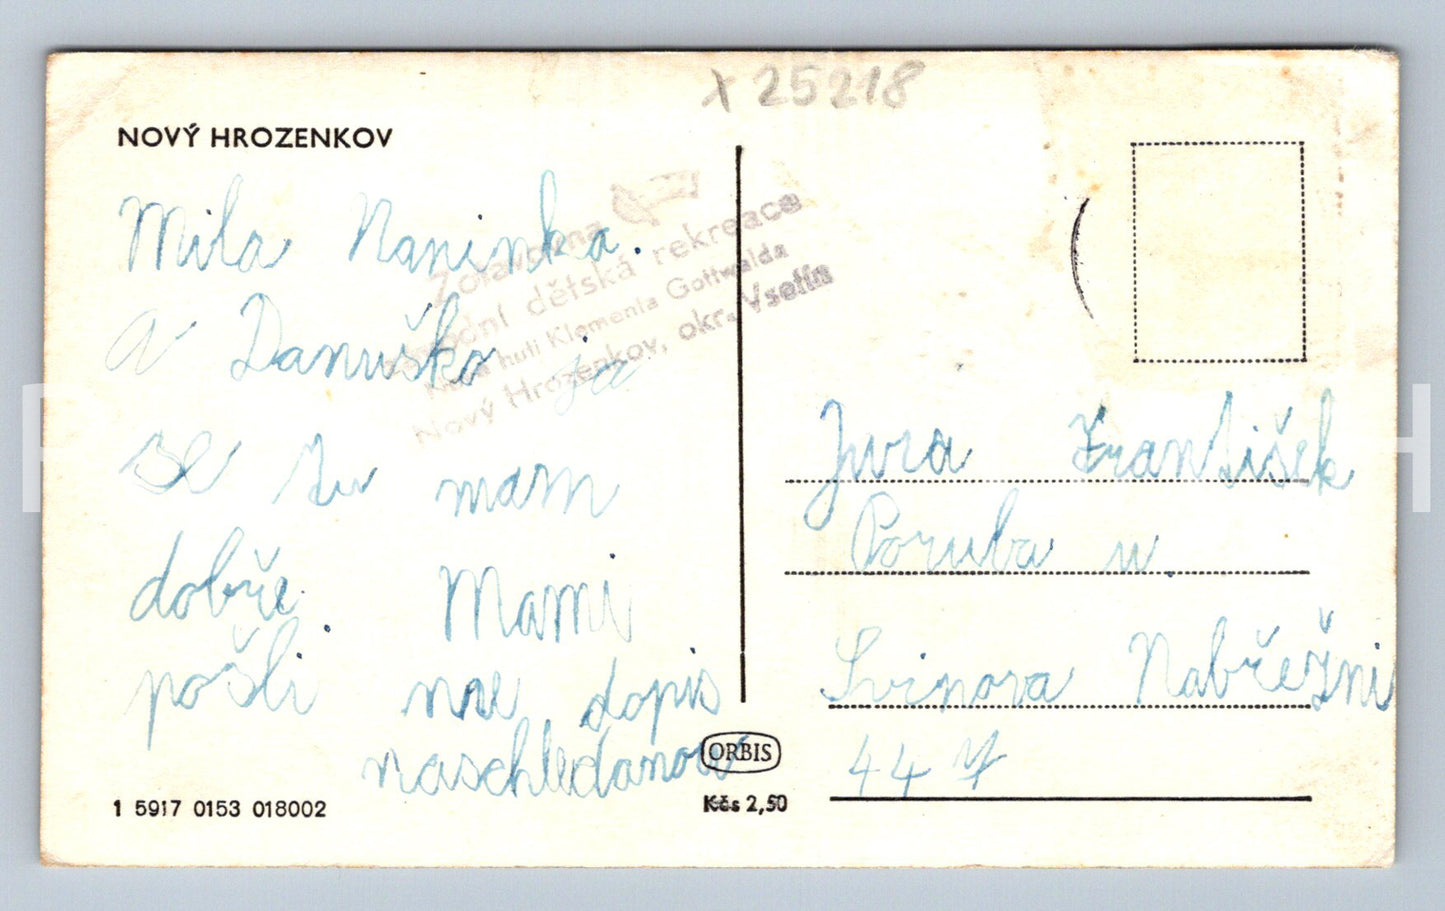 x 25218
NOVÝ HROZENKOV
Zotavovna
závodní dětská rekreace
Nová huti Klementa Gottwalda
Nový Hrozenkov, okr. Vsetín
Mila Maninka.
a Danuška ja
se tu mam
dobře. Mami
pošli mne dopis
naschledanou
Jura František
Poruba u.
Svinova Nabřežni
44
ORBIS
Kčs 2,50
1 5917 0153 018002